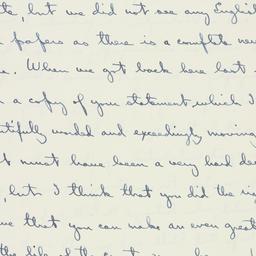 te, but we did not see any English
papers as there is a complete new
e. When we got back here last
a copy of your statement, which I
utifully worded and exceedingly moving
t must have been a very hard dec
, but I think that you did the rig
ve that you can make an even great
the life of the